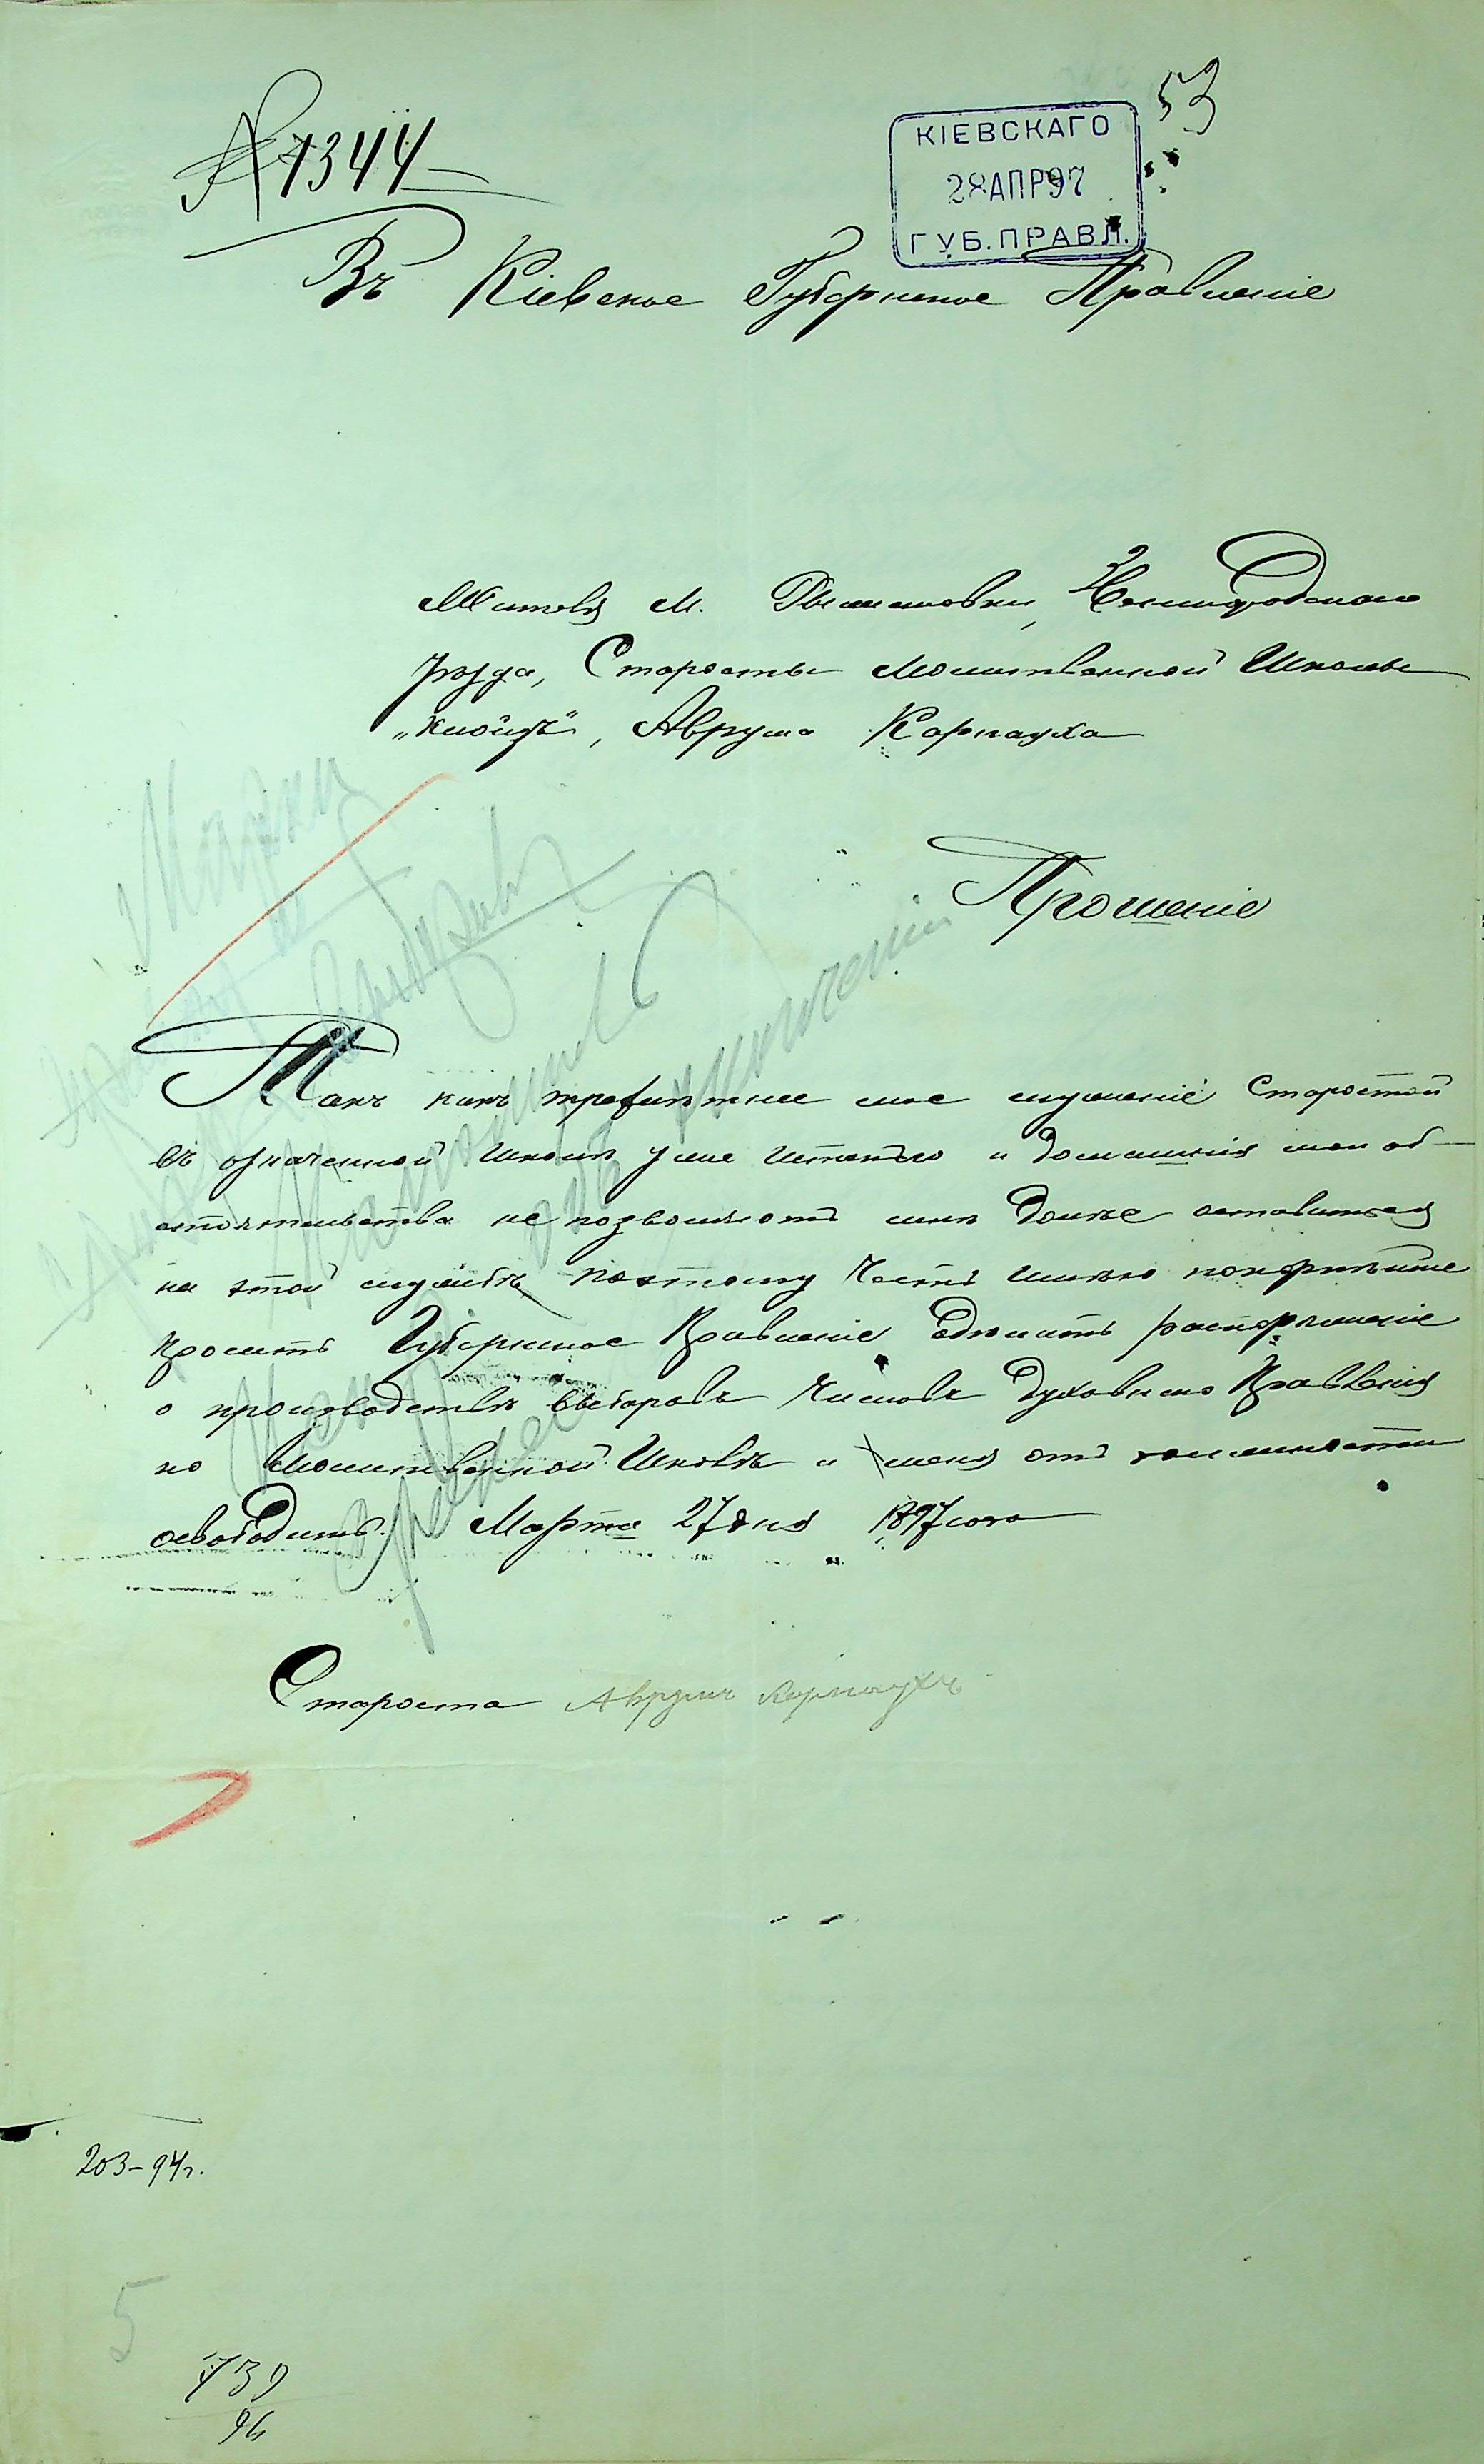 53
№ 1344
КІЕВСКАГО
28 АПР 97
ГУБ. ПРАВЛ.
Въ Кіевское Губернское Правленіе
Жителя м. Рыжановки, Звенигородскаго
уѣзда, Старосты Молитвенной Школы
„Клойзъ", Аврума Карнауха
Прошеніе
Такъ какъ трехлѣтнее мое служеніе Старостой
въ означенной школѣ уже истекло и домашнія мои об-
стоятельства не позволяютъ мнѣ долѣе оставаться
на этой службѣ поэтому честь имѣю покорнѣйше
просить Губернское Правленіе сдѣлать распоряженіе
о производствѣ выборовъ членовъ Духовнаго Правленія
по Молитвенной Школѣ и меня отъ должности
освободить. Марта 27 дня 1897 года
Староста Аврумъ Карнаухъ
203-94г.
5
739
96